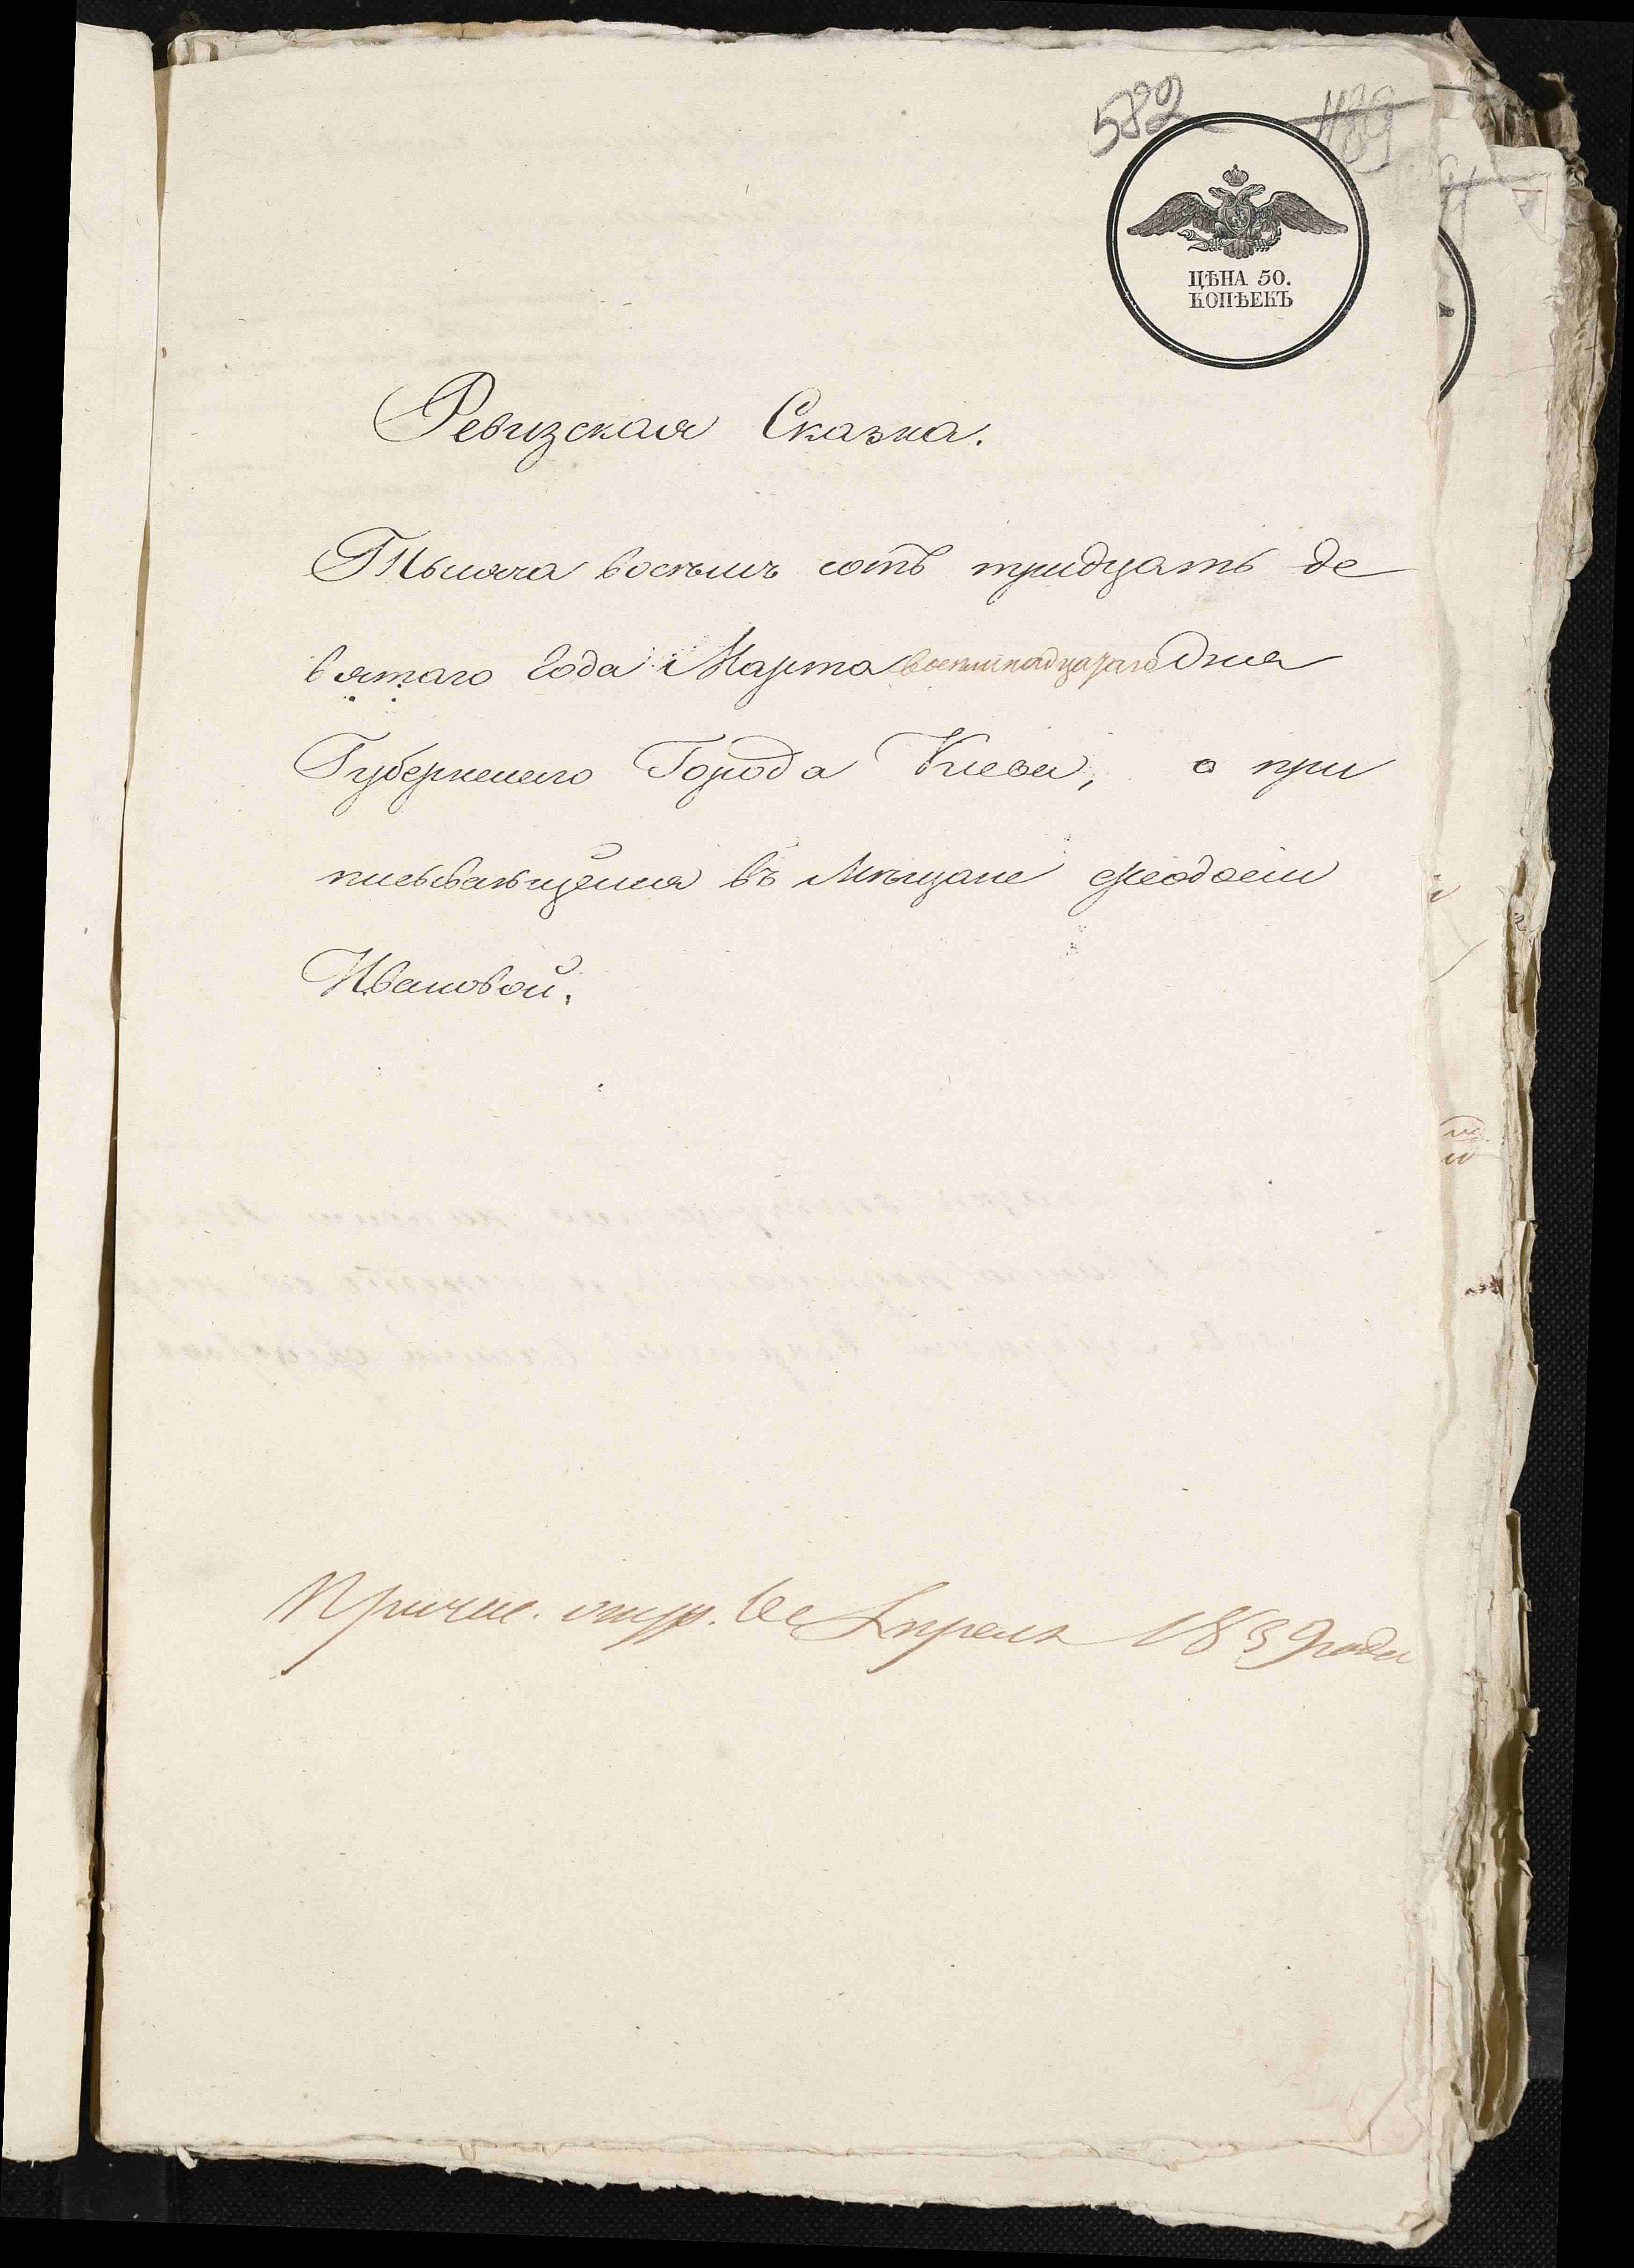 582
489
ЦѢНА 50.
КОПѢЕКЪ
Ревизская Сказка.
Тысяча восемь сотъ тридцать де
вятаго Года Марта восемнадцатаго Дня
Губернскаго Города Киева, о при
писывающейся въ Мещане Феодосіи
Ивановой.
Апреля 1839 года